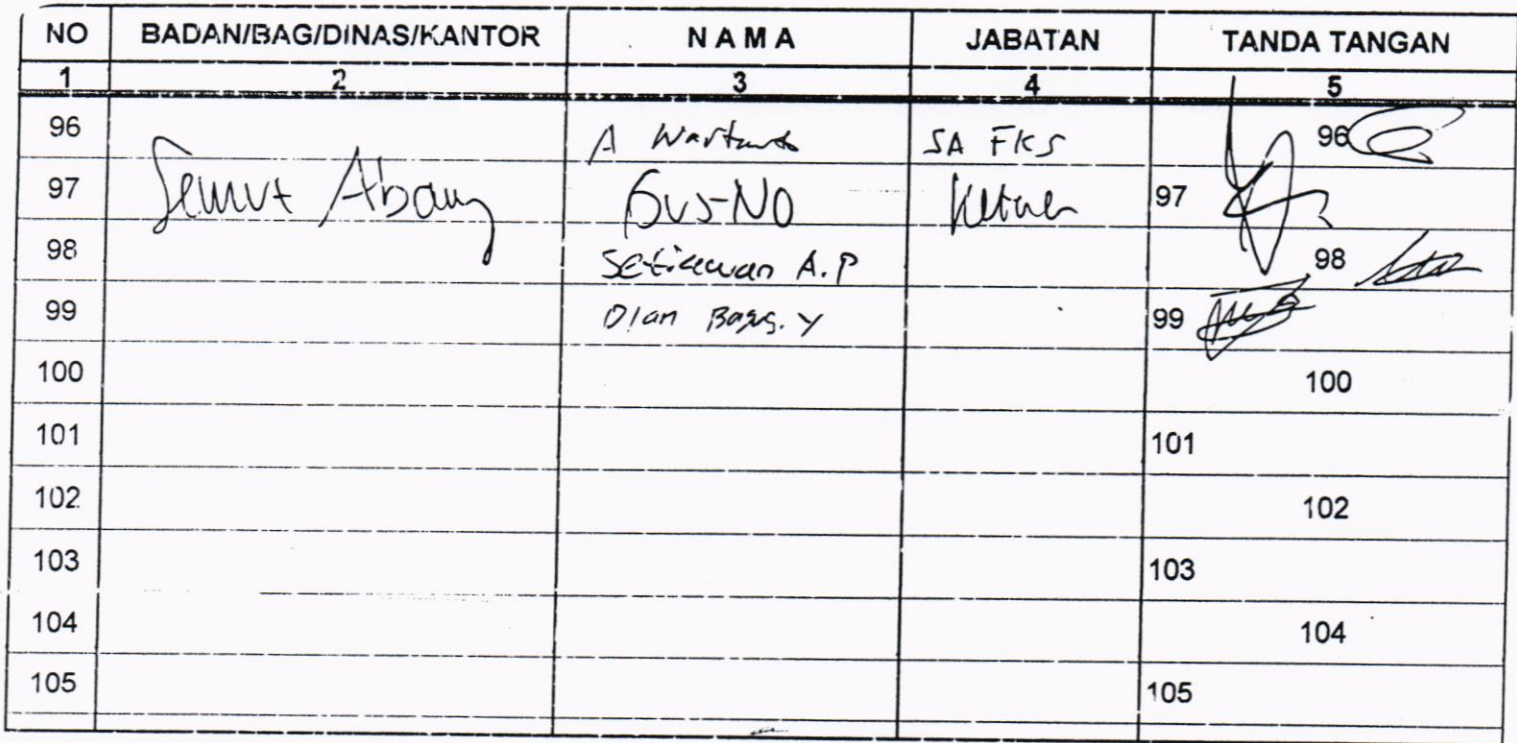 NO BADAN/BAG/DINAS/KANTOR N A M A JABATAN TANDA TANGAN
1 2 3 4 5
96 A Wartanto SA FKS 96
97 Semut Abang Gus-NO Ketua 97
98 Setiawan A.P 98
99 Dian Bagus. Y 99
100 100
101 101
102 102
103 103
104 104
105 105